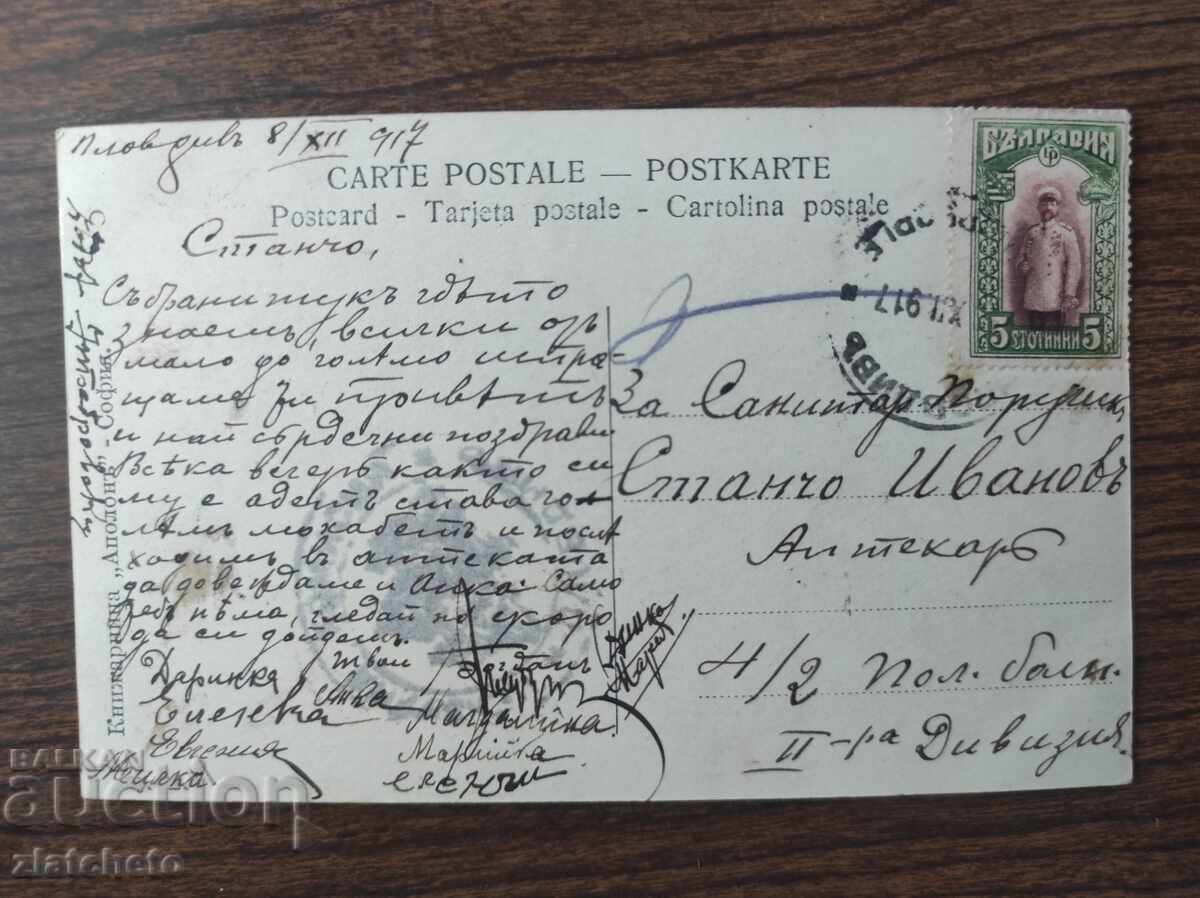 Пловдивъ 8/XII 917
CARTE POSTALE — POSTKARTE
Postcard - Tarjeta postale - Cartolina postale
Станчо,
Събрани тукъ гдѣто
знаемъ, всички отъ
мало до голѣмо испра-
щаме ти привѣтъ
и най сърдечни поздрави
Всѣка вечеръ както си
му е адетъ става гол-
ѣмъ мохабетъ и послѣ
ходимъ въ аптеката
да доведжаме и Анка. Само
тебъ нѣма, гледай по скоро
да си дойдешъ.
Твои
Даринка
Богданъ
Анка
Магдалинка
Евгения
Марийка
Книжарница „Аполонъ“ - София.
БЪЛГАРИЯ
5 СТОТИНКИ 5
ПЛОВДИВЪ
XII 917
За Санитар. Поручик,
Станчо Ивановъ
Аптекаръ
4/2 Пол. болн.
II-ра Дивизия.
BALKAN
auction
zlatcheto